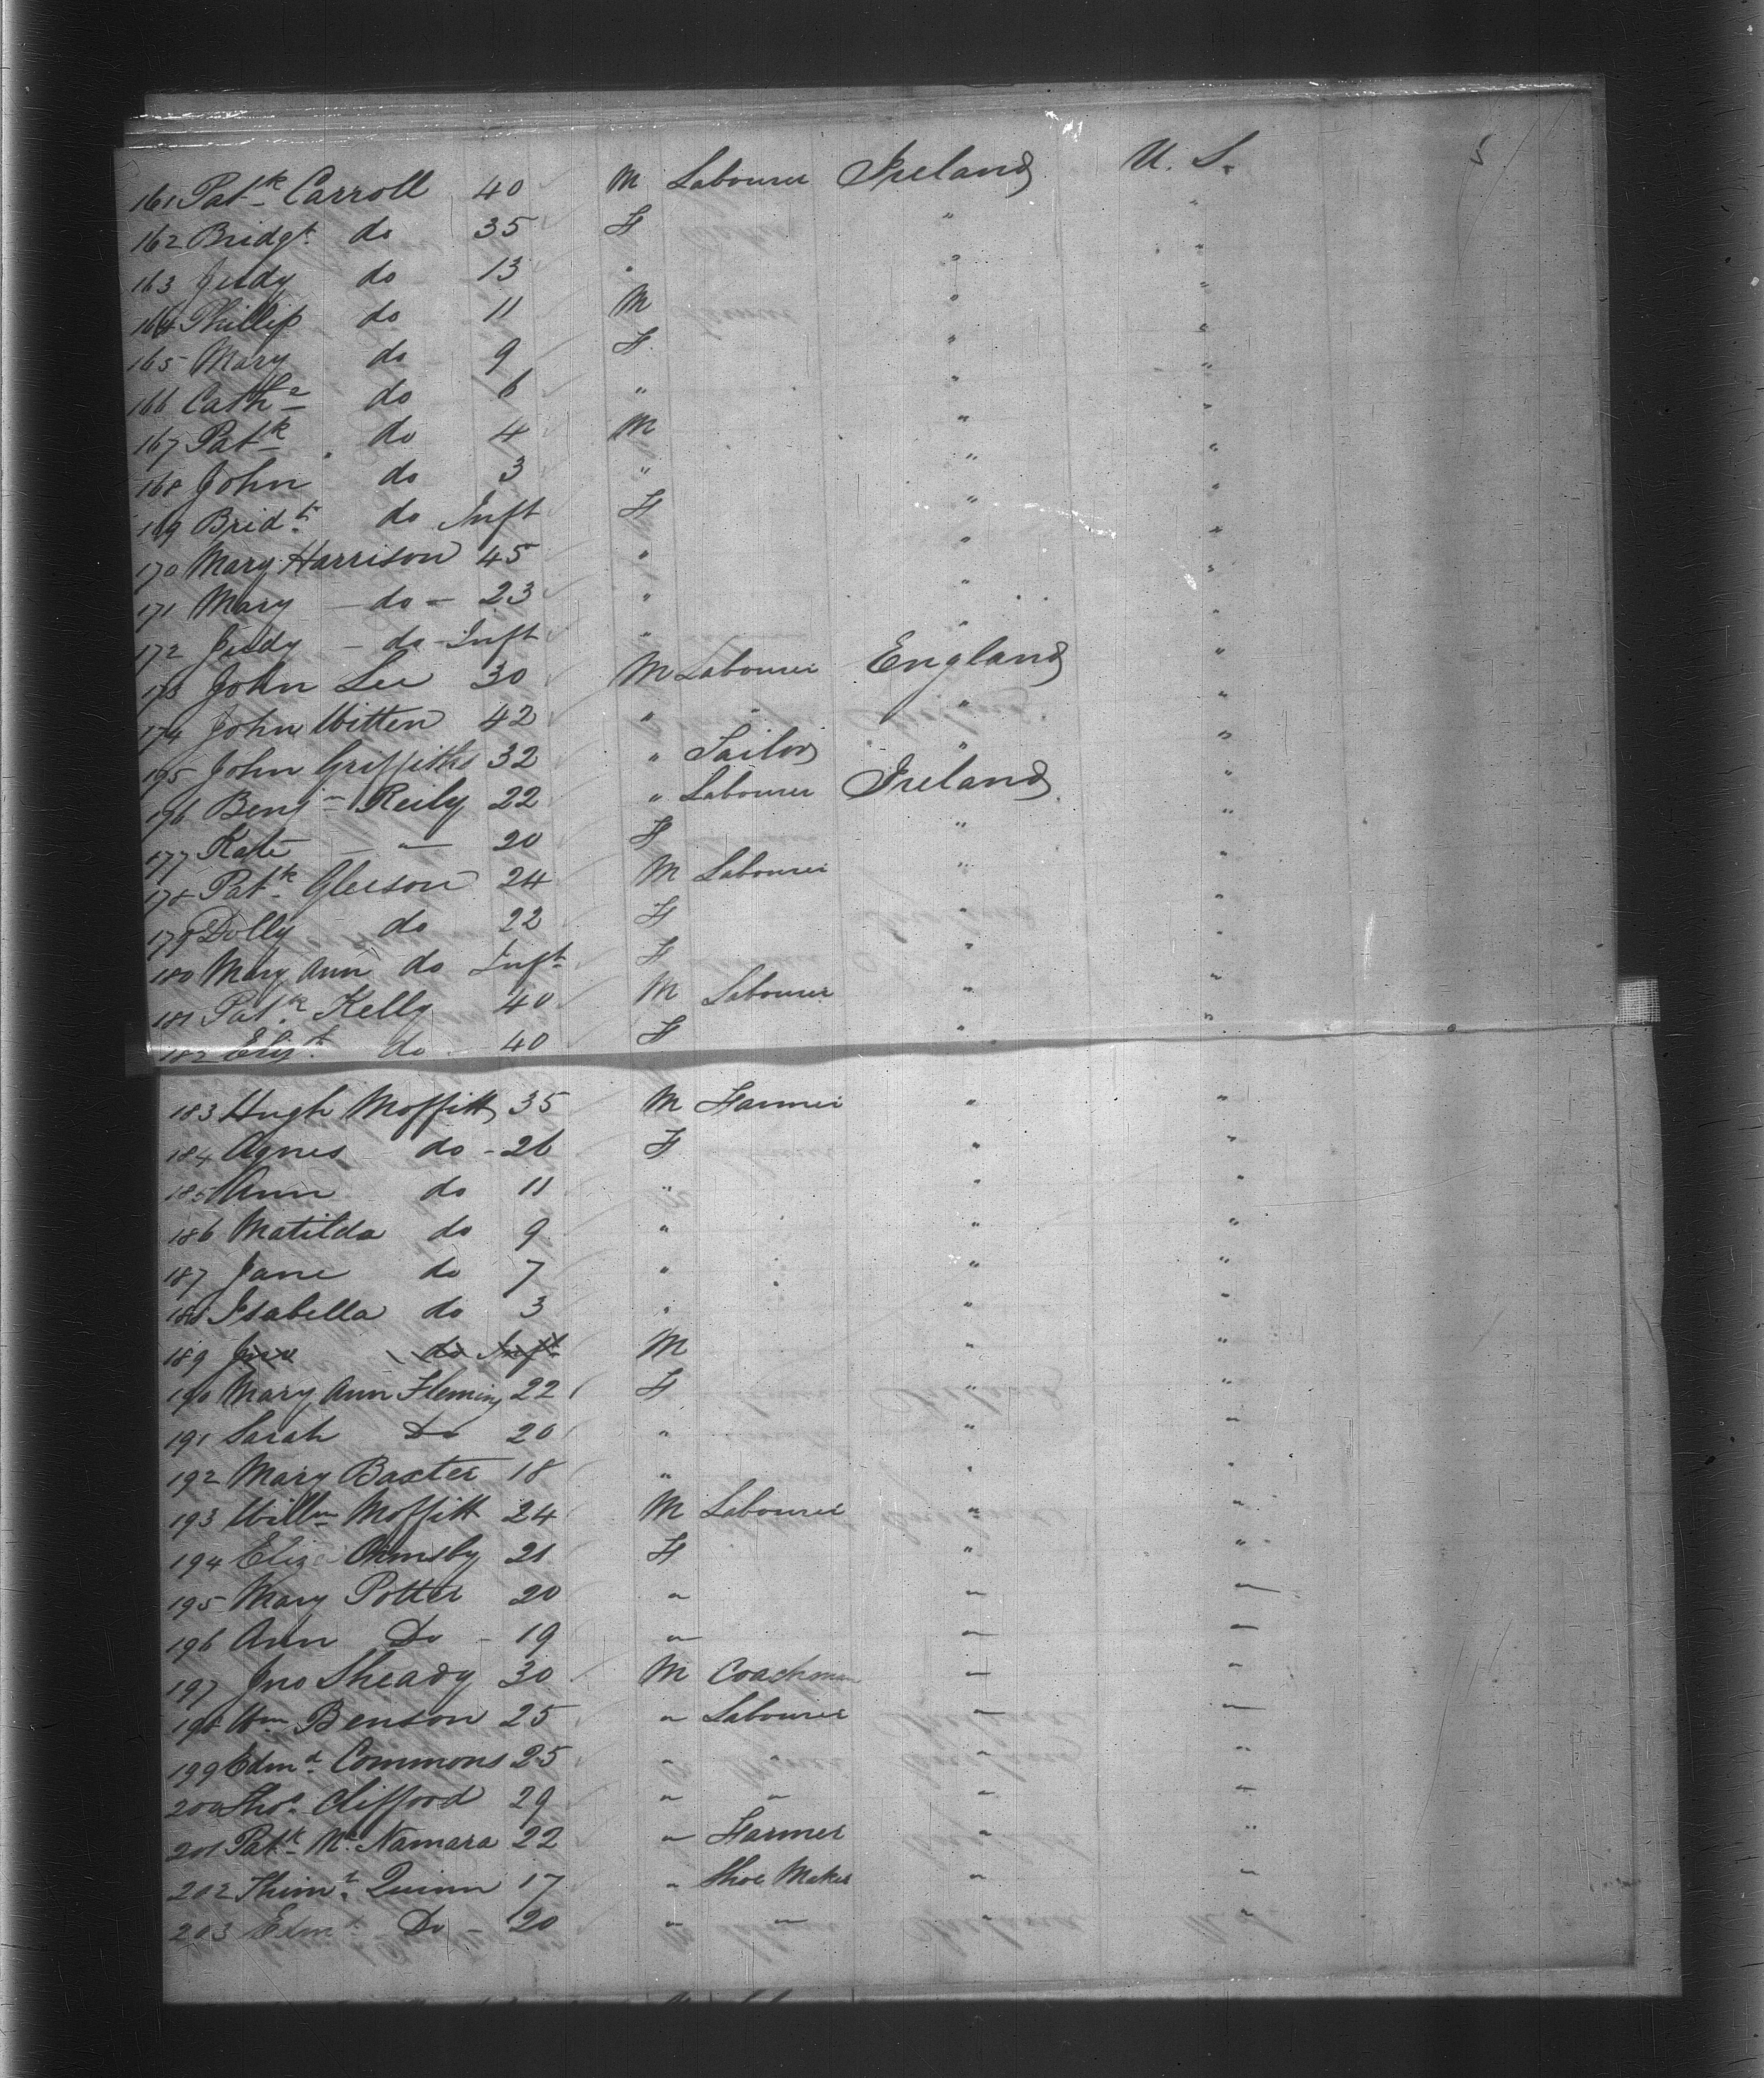 161 Patk Carroll 40 M Labourer Ireland U. S.
162 Bridgt do 35 F " "
163 Judy do 13 " " "
164 Phillip do 11 M " "
165 Mary do 9 F " "
166 Cathe do 6 " " "
167 Patk do 4 M " "
168 John do 3 " " "
169 Bridt do Inft F " "
170 Mary Harrison 45 " " "
171 Mary - do - 23 " " "
172 Judy - do - Inft " " "
173 John Lee 30 M Labourer England "
174 John Witten 42 " " " "
195 John Griffiths 32 " Sailor " "
196 Benjn Reily 22 " Labourer Ireland "
177 Kate — " — 20 F " "
178 Patk Gleeson 24 M Labourer " "
179 Dolly do 22 F " "
180 Mary Ann do Inft F " "
181 Patk Kelly 40 M Labourer " "
182 Elizt do 40 F " "
183 Hugh Moffitt 35 M Farmer " "
184 Agnes do - 26 F " "
185 Ann do 11 " " "
186 Matilda do 9 " " "
187 Jane do 7 " " "
188 Isabella do 3 " " "
189 do Inft M " "
190 Mary Ann Fleming 22 F " "
191 Sarah Do 20 " " "
192 Mary Baxter 18 " " "
193 Willm Moffitt 24 M Labourer " "
194 Eliza Ormsby 21 F " "
195 Mary Potter 20 " " "
196 Ann Do - 19 " " "
197 Jno Sheady 30 M Coachman " "
198 Wm Benson 25 " Labourer " "
199 Edmd Commons 25 " " " "
200 Thos Clifford 29 " " " "
201 Patk Mc Namara 22 " Farmer " "
202 Quinn 17 " Shoe Maker " "
203 Edmd Do - 20 " " " "